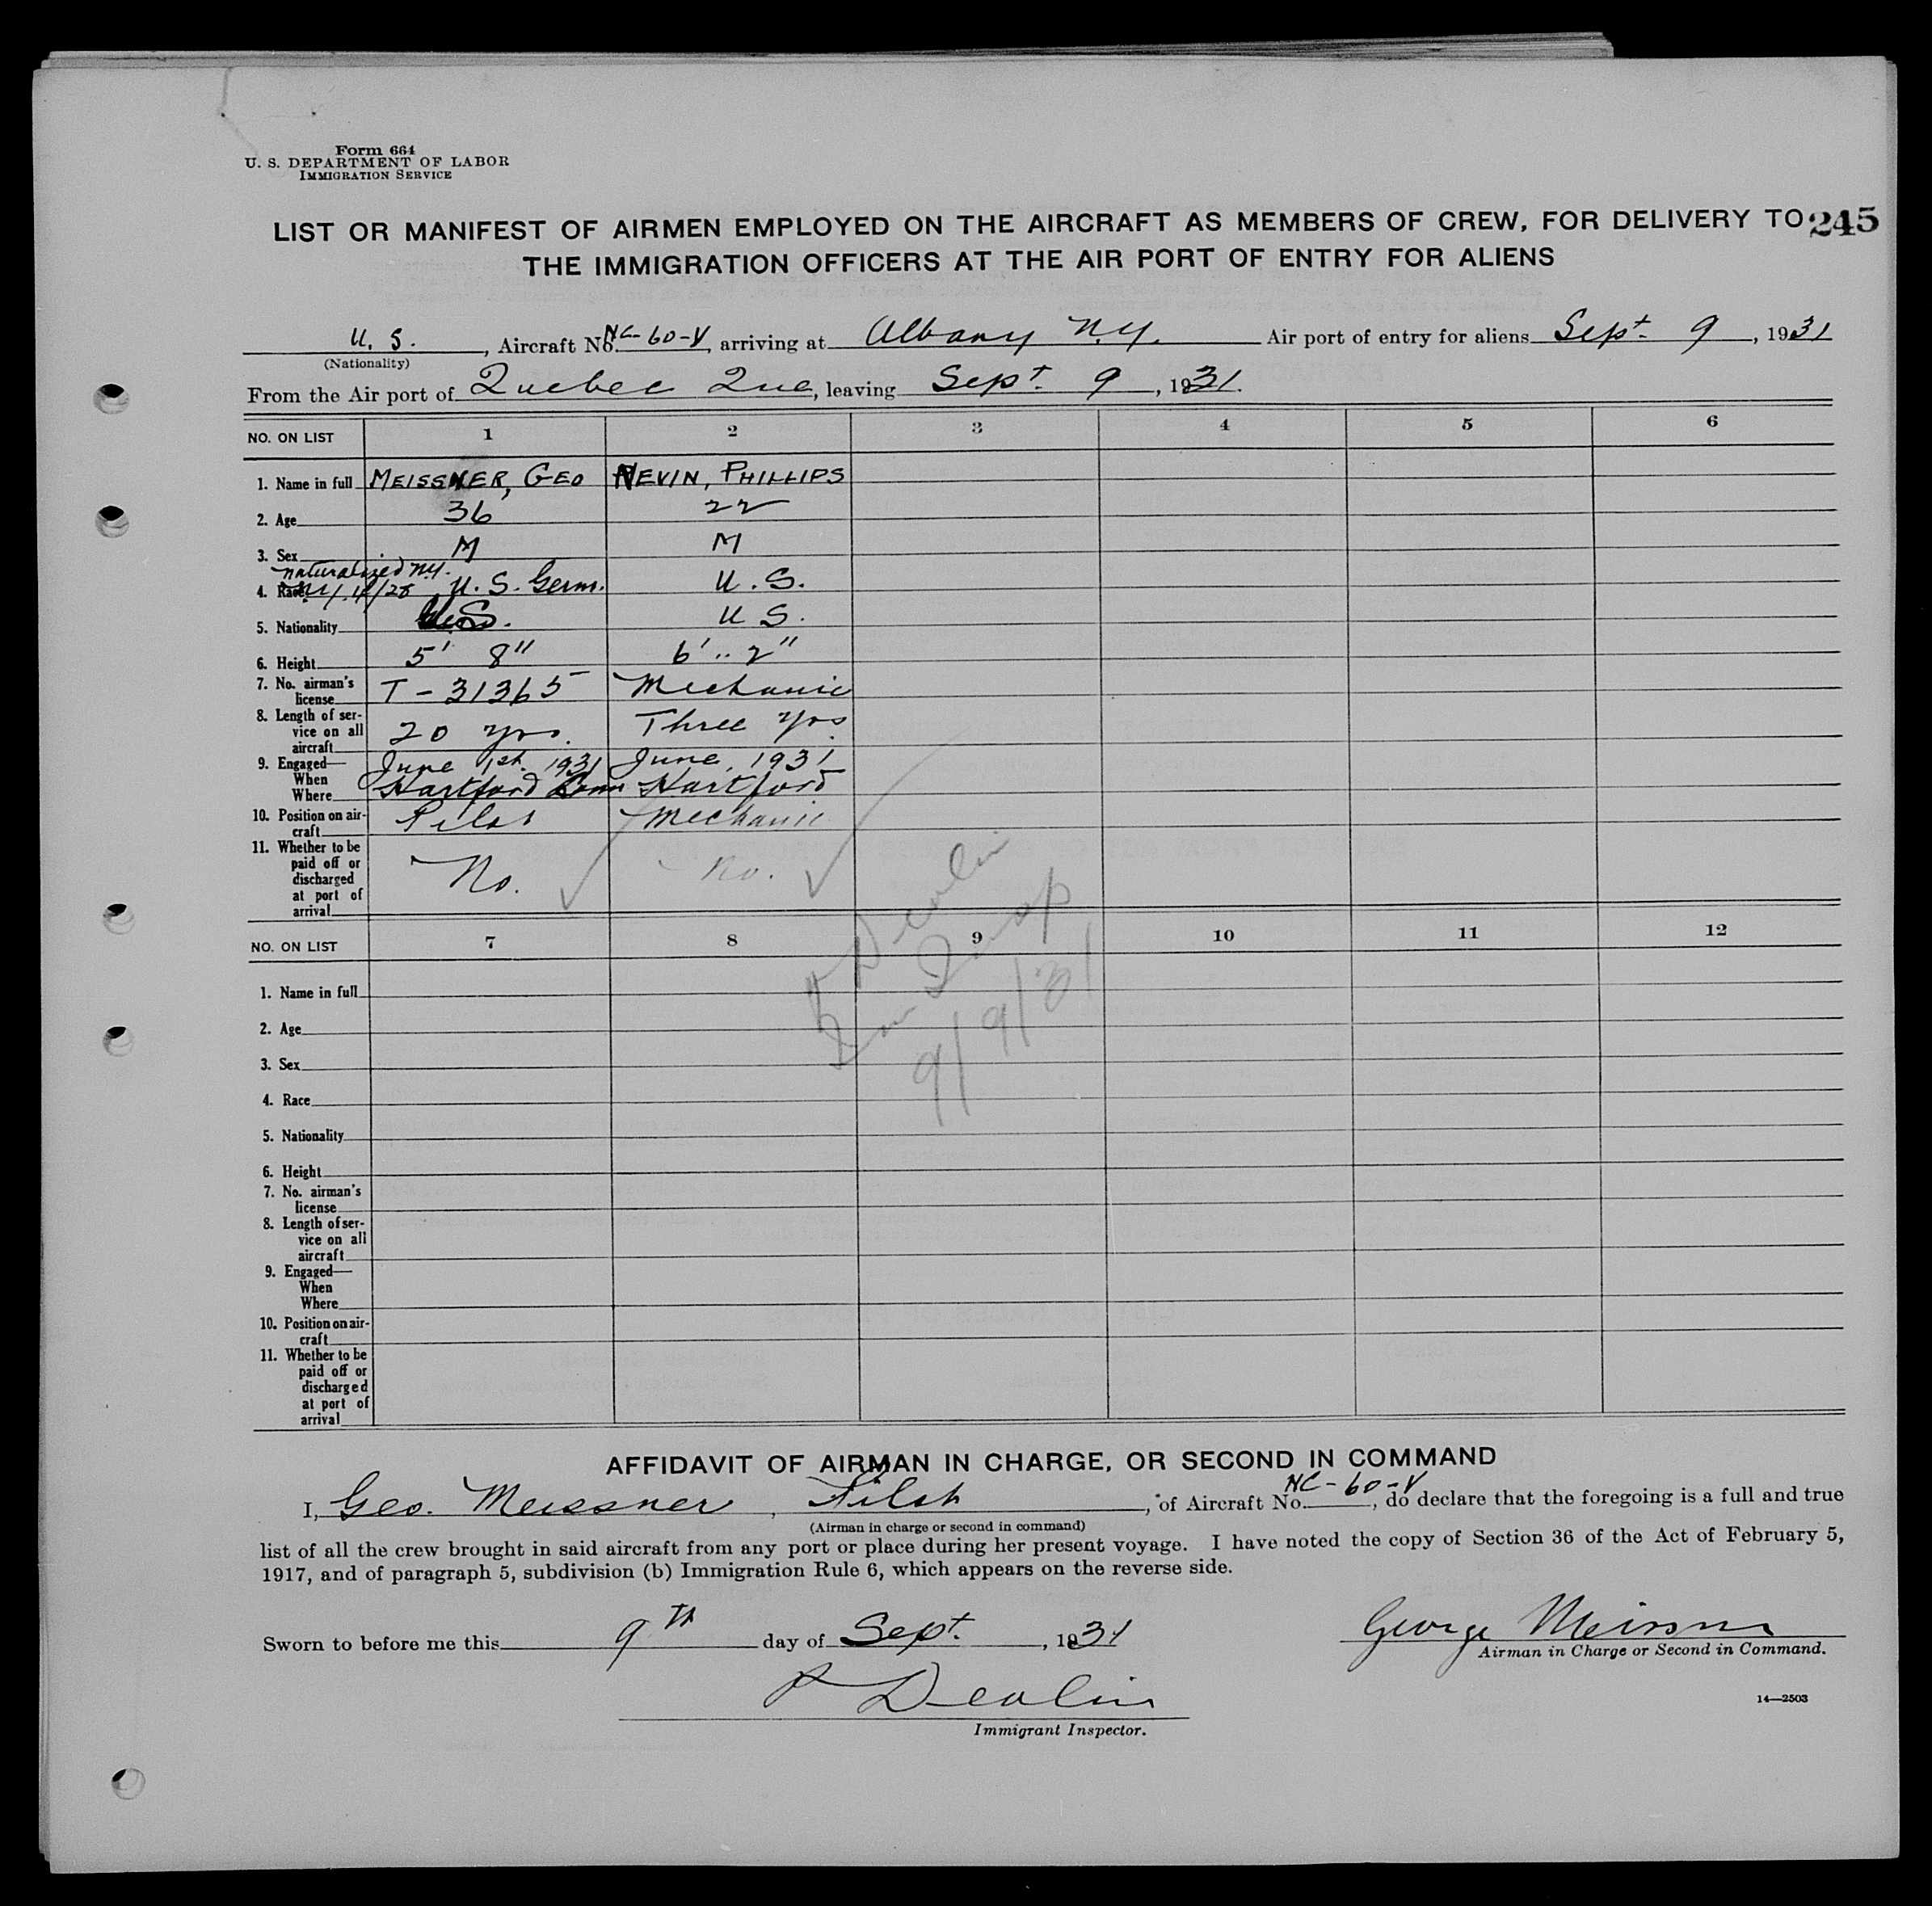 Form 664
U. S. DEPARTMENT OF LABOR
IMMIGRATION SERVICE
LIST OR MANIFEST OF AIRMEN EMPLOYED ON THE AIRCRAFT AS MEMBERS OF CREW, FOR DELIVERY TO 245
THE IMMIGRATION OFFICERS AT THE AIR PORT OF ENTRY FOR ALIENS
U. S., Aircraft No. NC-60-V, arriving at Albany N.Y. Air port of entry for aliens Sept. 9, 1931
(Nationality)
From the Air port of Quebec Que, leaving Sept. 9, 1931.
NO. ON LIST 1 2 3 4 5 6
1. Name in full MEISSNER, GEO NEVIN, PHILLIPS
2. Age 36 22
3. Sex M M
naturalized N.Y.
4. Race U. S. Germ. U. S.
5. Nationality U.S. U S.
6. Height 5' 8" 6' .. 2"
7. No. airman's license T-31365 Mechanic
8. Length of service on all aircraft 20 yrs. Three yrs
9. Engaged— When June 1st. 1931 June, 1931
Where Hartford Conn Hartford
10. Position on aircraft Pilot Mechanic
11. Whether to be paid off or discharged at port of arrival No. No.
Devlin
9/9/31
NO. ON LIST 7 8 9 10 11 12
1. Name in full
2. Age
3. Sex
4. Race
5. Nationality
6. Height
7. No. airman's license
8. Length of service on all aircraft
9. Engaged— When Where
10. Position on aircraft
11. Whether to be paid off or discharged at port of arrival
AFFIDAVIT OF AIRMAN IN CHARGE, OR SECOND IN COMMAND
I, Geo. Meissner, Pilot, of Aircraft No. NC-60-V, do declare that the foregoing is a full and true
(Airman in charge or second in command)
list of all the crew brought in said aircraft from any port or place during her present voyage. I have noted the copy of Section 36 of the Act of February 5,
1917, and of paragraph 5, subdivision (b) Immigration Rule 6, which appears on the reverse side.
Sworn to before me this 9th day of Sept., 1931 George Meissner
Airman in Charge or Second in Command.
Devlin
14—2503
Immigrant Inspector.